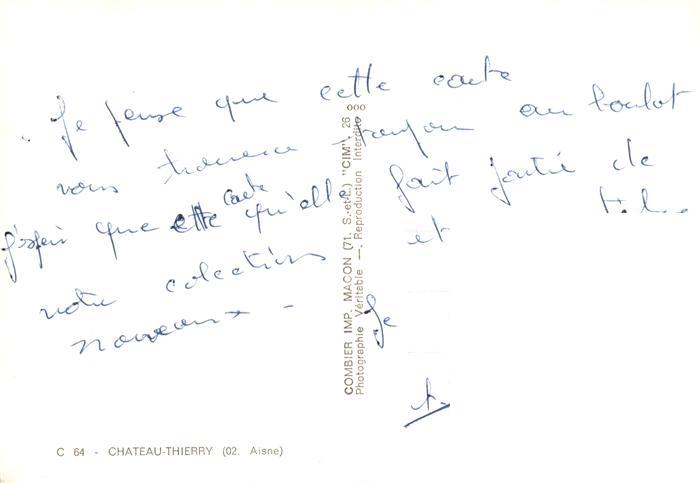 Je pense que cette carte
vous trouvera toujours au boulot
J'espère que cette carte qu'elle fait partie de
votre colections et
nouveaux - Je
COMBIER IMP. MACON (71. S.-et-L.) "CIM". 26 000
Photographie Véritable —. Reproduction Interdite
C 64 - CHATEAU-THIERRY (02. Aisne)